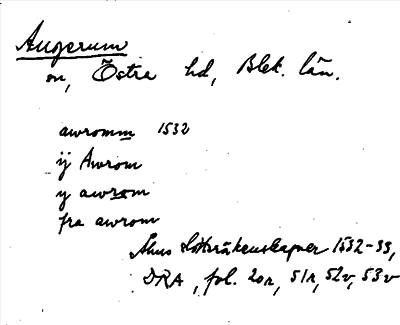 Augerum
sn, Östra hd, Blek. län.
awromm 1532
ij Awrom
y awrom
fra awrom
Åhus slottsräkenskaper 1532-33,
DRA, fol. 20r, 51r, 52v, 53v